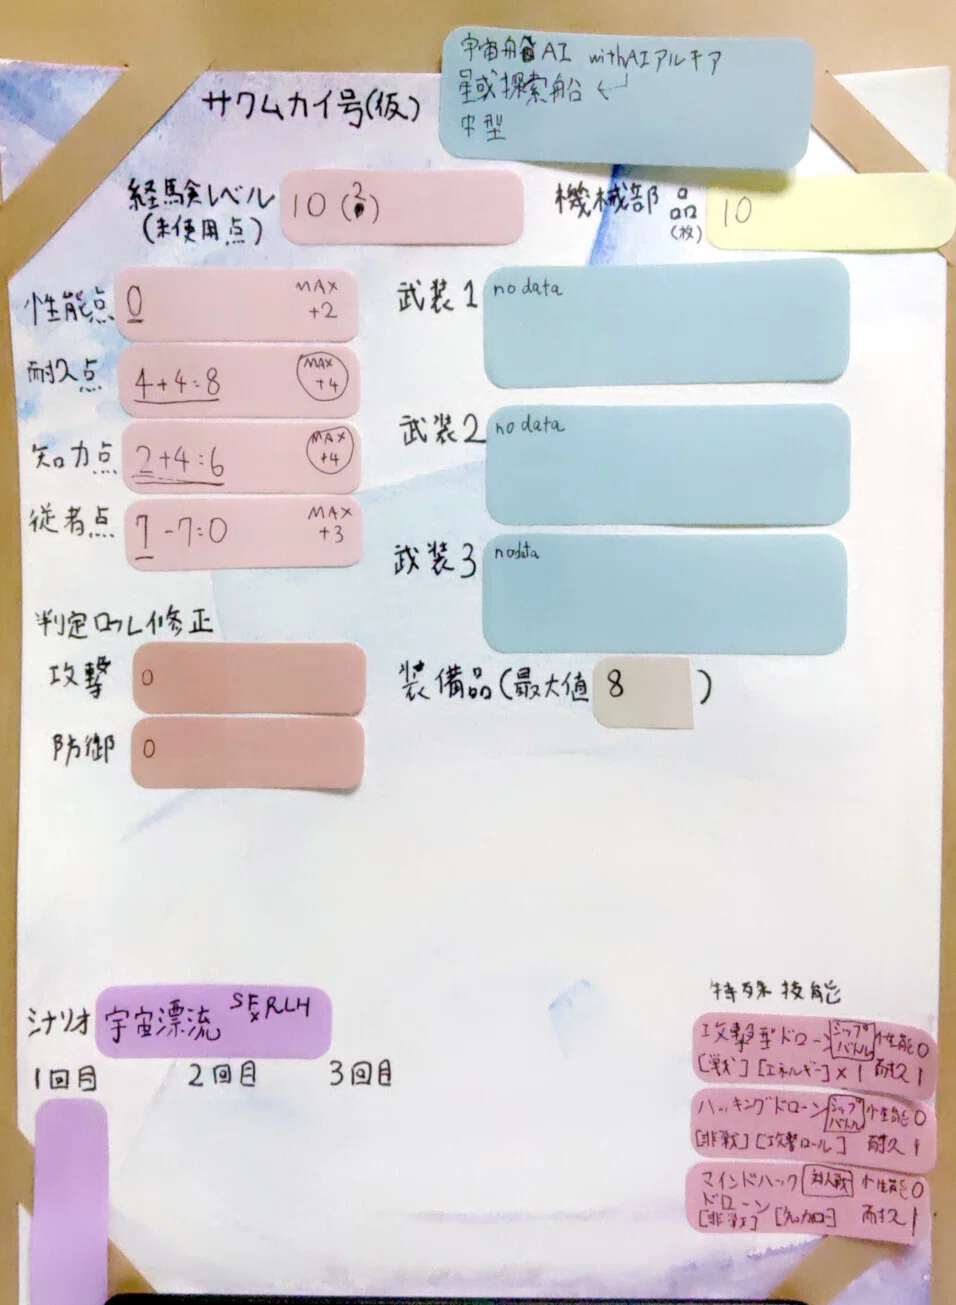 サクムカイ号(仮)
宇宙船AI withAIアルキア
星或探索船
中型
経験レベル
(未使用点)
10 (2)
機械部品
(枚)
10
性能点
0
MAX
+2
耐久点
4+4=8
MAX
+4
知力点
2+4=6
MAX
+4
従者点
7-7=0
MAX
+3
武装1
no data
武装2
no data
武装3
no data
判定ロール修正
攻撃
0
防御
0
装備品(最大値 8 )
シナリオ
宇宙漂流 SF×RLH
1回目 2回目 3回目
特殊技能
攻撃型ドローン シップバトル 性能0
[戦] [エネルギー]×1 耐久1
ハッキングドローン シップバトル 性能0
[非戦] [攻撃ロール] 耐久1
マインドハック 対人戦 性能0
ドローン
[非戦] [知力] 耐久1